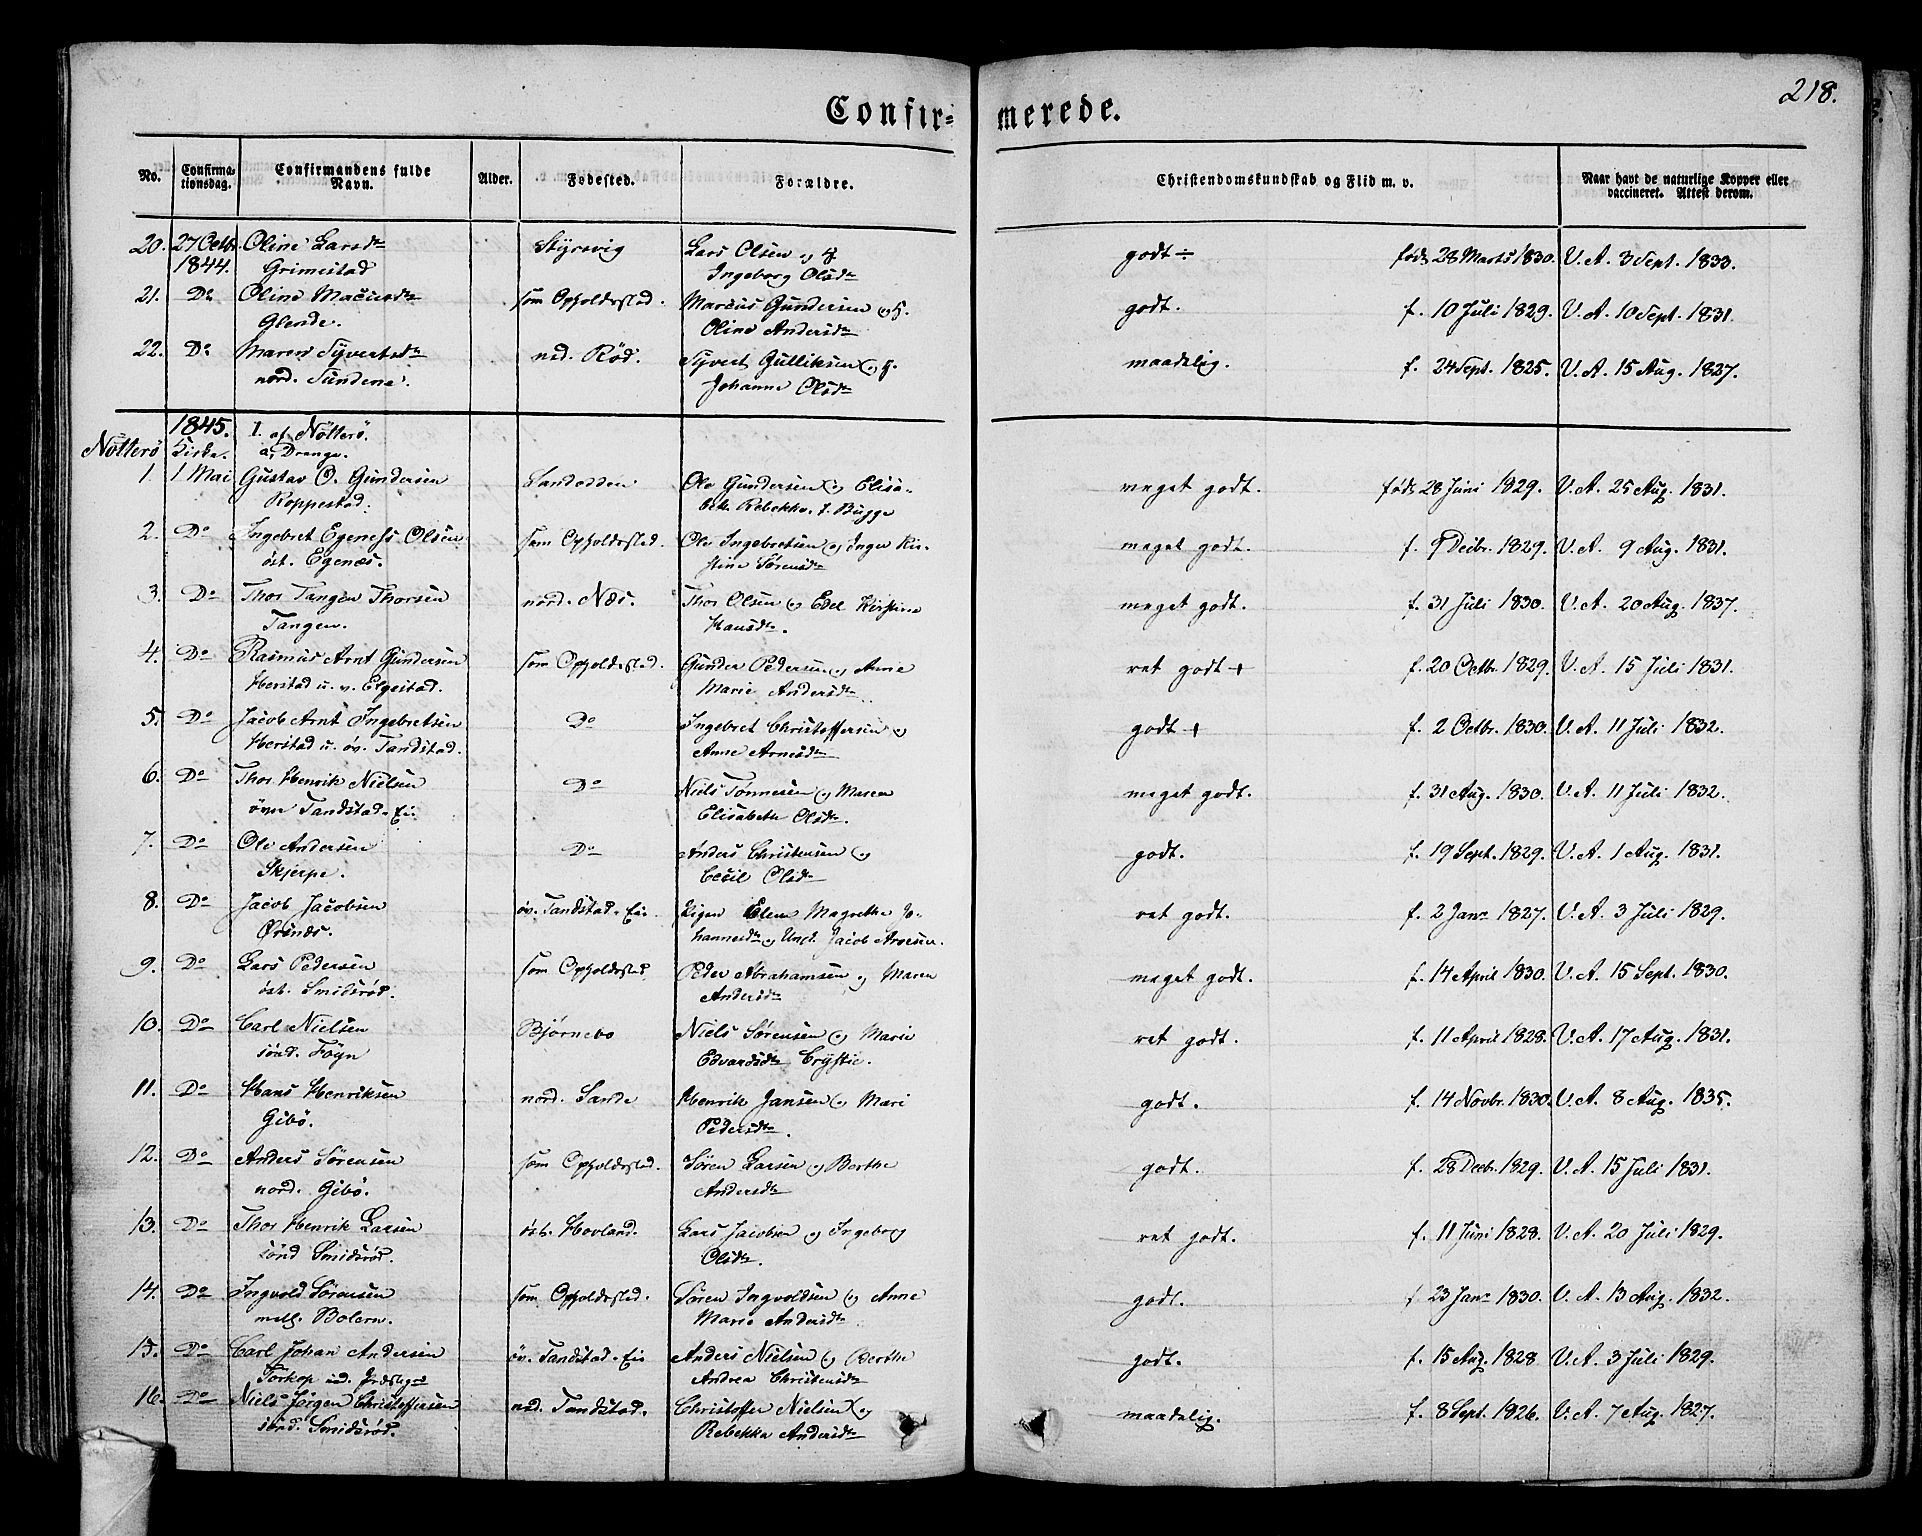 218.
Confirmerede.
No. Confirmationsdag. Confirmandens fulde Navn. Alder. Fødested. Forældre. Christendomskundskab og Flid m. v. Naar havt de naturlige Kopper eller vaccineret. Attest derom.
20. 27 Octbr. Oline Larsdtr Styrsvig Lars Olsen og H. godt ÷ født 28 Marts 1830. V. A. 3 Sept. 1833.
1844. Grimestad Ingeborg Olsdtr
21. Do Oline Macusdtr som Opholdssted. Marcus Gundersen og H. godt. f. 10 Juli 1829. V. A. 10 Sept. 1831.
Glende. Oline Andersdtr
22. Do Maren Syvertsdtr ned. Rød. Syvert Gulliksen og H. maadelig. f. 24 Sept. 1825. V. A. 15 Aug. 1827.
nord. Sundene. Johanne Olsdtr
1845. I. af Nötterö.
Nötterö Kirke. a, Drenge.
1. 1 Mai Gustav O. Gundersen Sandosen Ole Gundersen og Elisa- meget godt. født 28 Juni 1829. V. A. 25 Aug. 1831.
Roppestad. beth Rebekka f. Bugge
2. Do Ingebret Egeness Olsen som Opholdssted. Ole Ingebretsen og Inger Kir- meget godt. f. 9 Decbr. 1829. V. A. 9 Aug. 1831.
öst. Egenæs. stine Sørensdtr
3. Do Thor Tangen Thorsen nord. Næs. Thor Olsen og Edel Kirstine meget godt. f. 31 Juli 1830. V. A. 20 Aug. 1837.
Tangen. Hansdtr.
4. Do Rasmus Arnt Gundersen som Opholdssted. Gunder Pedersen og Anne ret godt + f. 20 Octbr. 1829. V. A. 15 Juli 1831.
Herstad u. v. Elgestad. Marie Andersdtr
5. Do Jacob Arnt Ingebretsen Do Ingebret Christoffersen og godt + f. 2 Octbr. 1830. V. A. 11 Juli 1832.
Herstad u. öv. Tandstad. Anne Arnesdtr
6. Do Thor Henrik Nielsen Do Niels Tönnesen og Maren meget godt. f. 31 Aug. 1830. V. A. 11 Juli 1832.
övre Tandstad-Eie Elisabeth Olsdtr.
7. Do Ole Andersen Do Anders Christensen og godt. f. 19 Sept. 1829. V. A. 1 Aug. 1831.
Skjerpe. Cecil Olsdtr
8. Do Jacob Jacobsen öv. Tandstad-Eie. Pigen Elen Magrethe Jo- ret godt. f. 2 Janr 1827. V. A. 3 Juli 1829.
Ørsnæs. hannesdtr og Ungk. Jacob Arvesen.
9. Do Lars Pedersen som Opholdssted. Peder Abrahamsen og Maren meget godt. f. 14 April 1830. V. A. 15 Sept. 1830.
öst. Smidsröd. Andersdtr
10. Do Carl Nielsen Bjørnebo Niels Sørensen og Marie ret godt. f. 11 April 1828. V. A. 17 Aug. 1831.
sönd. Föyn Edvardsdtr Crystie.
11. Do Hans Henriksen nord. Sande Henrik Jansen og Mari godt. f. 14 Novbr. 1830. V. A. 8 Aug. 1835.
Gibö. Pedersdtr.
12. Do Anders Sörensen som Opholdssted. Sören Larsen og Berthe godt. f. 28 Decbr. 1829. V. A. 15 Juli 1831.
nord. Gibö. Andersdtr
13. Do Thor Henrik Larsen öst. Hovland. Lars Jacobsen og Ingeborg ret godt. f. 11 Juni 1828. V. A. 20 Juli 1829.
sönd Smidsröd. Olsdtr.
14. Do Ingvold Sörensen som Opholdssted. Sören Ingvoldsen og Anne godt. f 23 Janr 1830. V. A. 13 Aug. 1832.
mell. Bolern. Marie Andersdtr
15. Do Carl Johan Andersen öv. Tandstad-Eie Anders Nielsen og Berthe godt. f. 15 Aug. 1828. V. A. 3 Juli 1829.
Torkop Andrea Christensdtr
16. Do Niels Jörgen Christoffersen ned. Tandstad. Christoffer Nielsen og maadelig. f. 8 Sept. 1826. V. A. 7 Aug. 1827.
sönd. Smidsröd. Rebekka Andersdtr